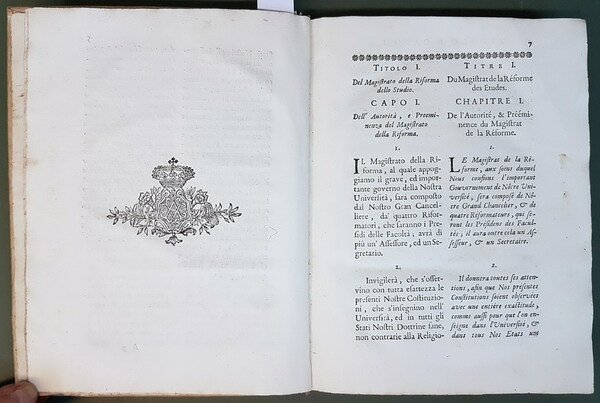 7
TITOLO I.
Del Magistrato della Riforma
dello Studio.
CAPO I.
Dell' Autorità, e Preemi-
nenza del Magistrato
della Riforma.
1.
IL Magistrato della Ri-
forma, al quale appog-
giamo il grave, ed importante
governo della Nostra
Università, sarà composto
dal Nostro Gran Cancel-
liere, da quattro Rifor-
matori, che saranno i Pre-
sidi delle Facoltà, avrà di
più un' Assessore, ed un Se-
gretario.
2.
Invigilerà, che s'osser-
vino con tutta esattezza le
presenti Nostre Costituzio-
ni, che s'insegnino nell'
Università, ed in tutti gli
Stati Nostri Dottrine sane,
non contrarie alla Religio-
TITRE I.
Du Magistrat de la Réforme
des Etudes.
CHAPITRE I.
De l'Autorité, & Préémi-
nence du Magistrat
de la Réforme.
1.
LE Magistrat de la Ré-
forme, aux soins duquel
Nous confions l'important
Gouvernement de Nôtre Uni-
versité, sera composé de Nô-
tre Grand Chancelier, & de
quatre Réformateurs, qui se-
ront les Présidens des Facul-
tés; il aura outre cela un As-
sesseur, & un Secretaire.
2.
Il donnera toutes ses atten-
tions, afin que Nos presentes
Constitutions soient observées
avec une entiere exactitude,
comme aussi pour que l'on en-
seigne dans l'Université, &
dans tous Nos Etats une